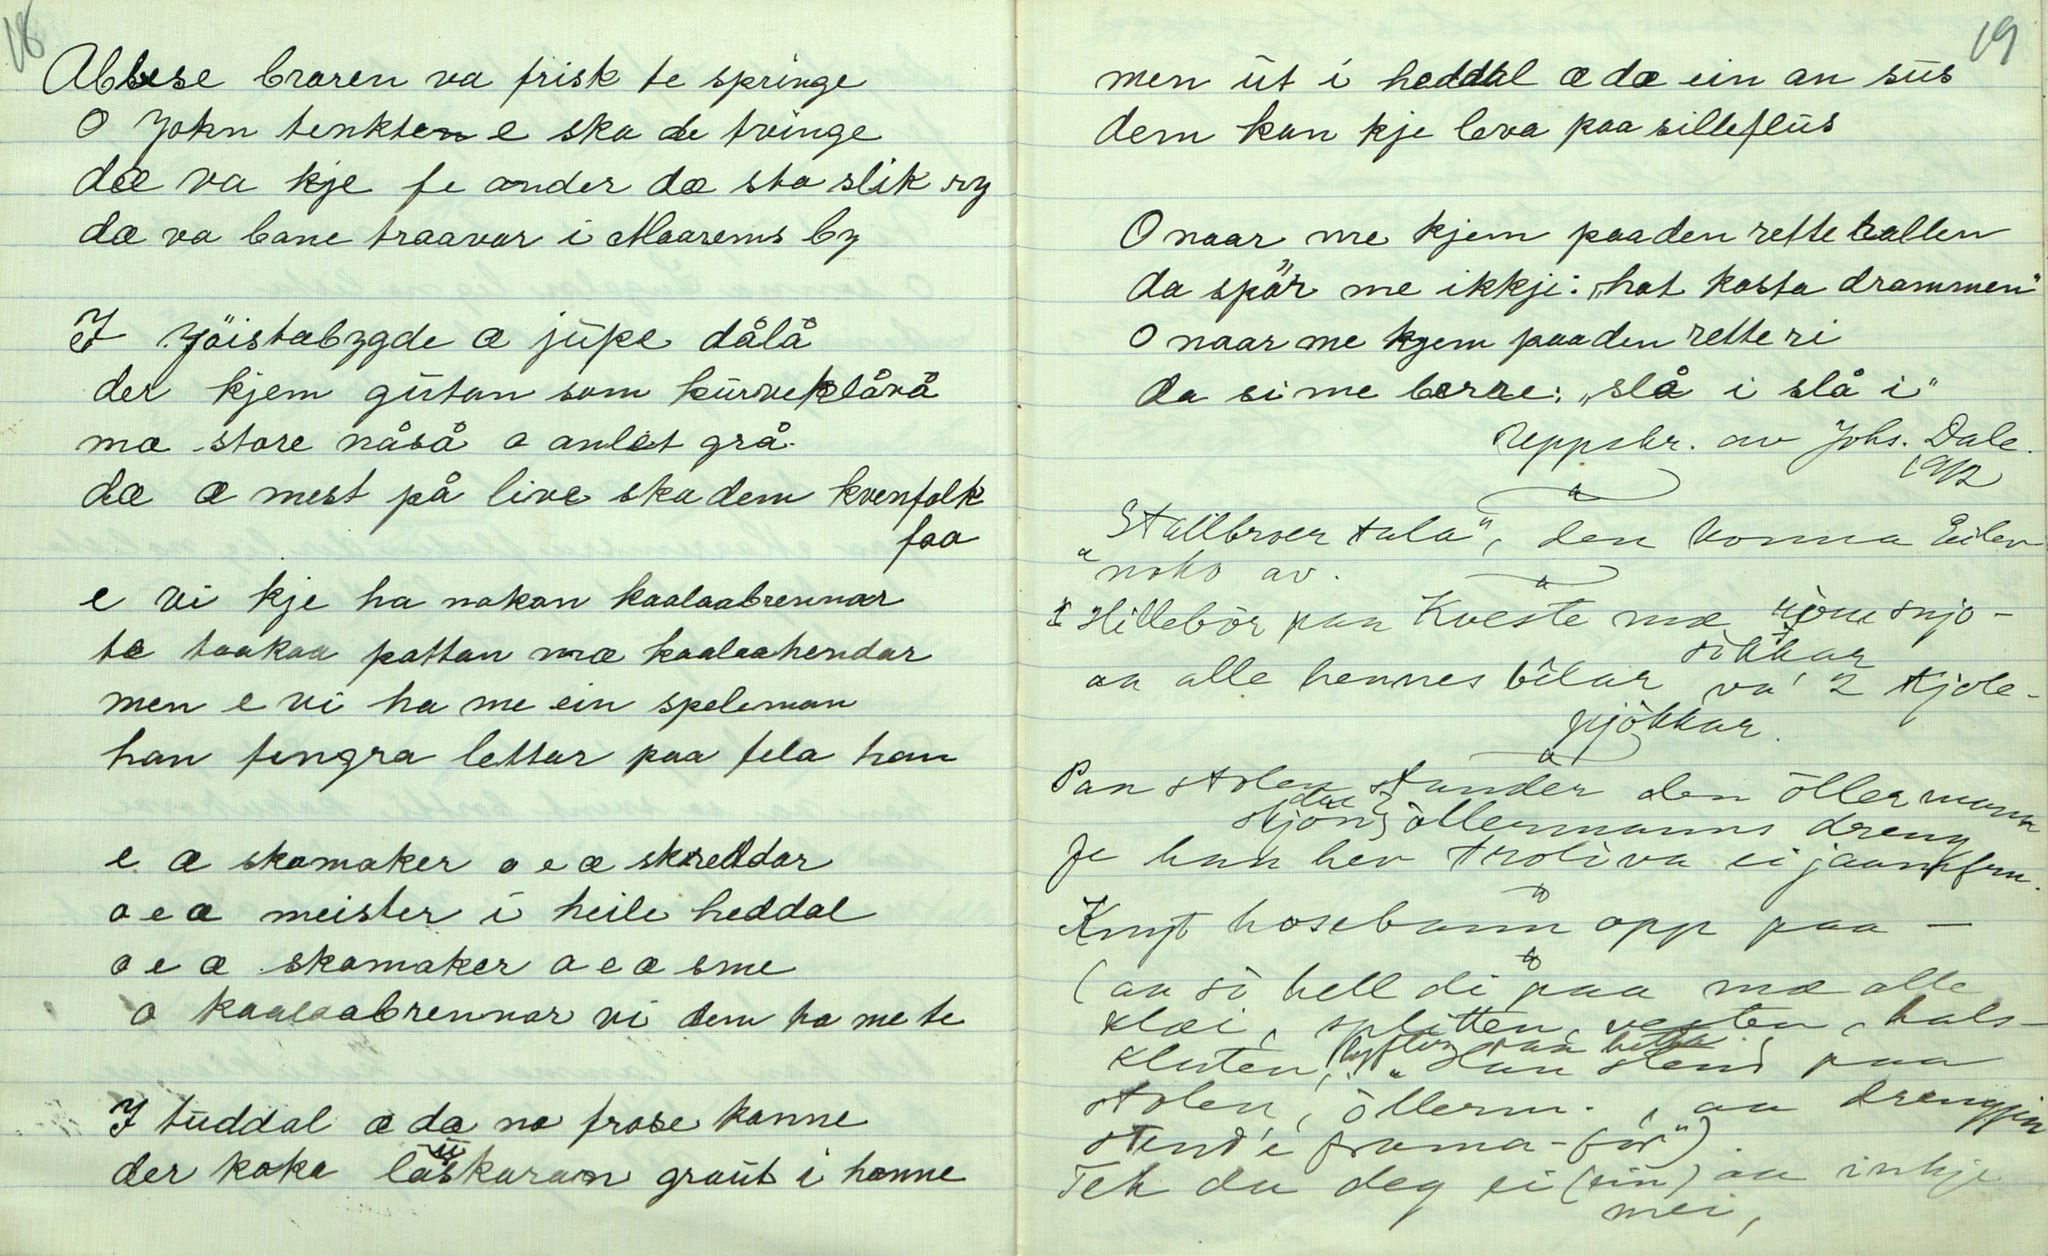 18
Abbese braren va frisk te springe
O John tenkte e ska de tvinge
dæ va kje fe ander dæ sto slik ry
dæ va bane traavar i Maarems by
I Jöistabygde æ jupe dålå
der kjem gutan som kurveklåvå
mæ store nåså o anlet grå
dæ æ mest på live ska dem kvenfolk
faa
e vi kje ha nokon kaalaabrennar
te taakaa pattan mæ kaalaahendar
men e vi ha me ein speleman
han fingra lettar paa fela han
e æ skomaker o e æ skreddar
o e æ meister i heile heddal
o e æ skomaker o e æ sme
o kaalaabrennar vi dem ha me te
I tuddal æ dæ no frose kanne
der koka lauskaran graut i hanne
19
men ut i heddal æ dæ ein an sus
dem kan kje leva paa silleflus
O naar me kjem paa den rette tallen
da spör me ikkji: „hot kosta drammen"
O naar me kjem paa den rette ri
da si me berre: „slå i slå i"
Uppskr. av Johs. Dale.
1912
"Stallbroer tala", den konna Eilev
noko av.
Hillebör paa Kveste mæ sjou snjo-
sökkar
aa alle hennes bilar va 2 kjole-
pjökkar.
Paa stolen stander den öllermann
stjön öllermanns dreng
fe han hev troliva ei jaamfru.
Knyt hosebann opp paa —
(aa so hell di paa mæ alle
klæi, splitten, vesten, hals-
kluten, "Han stend paa
stolen, öllerm., aa drengjin
stend i frama-för")
Tek du deg ei (ein) aa inkje
mei,